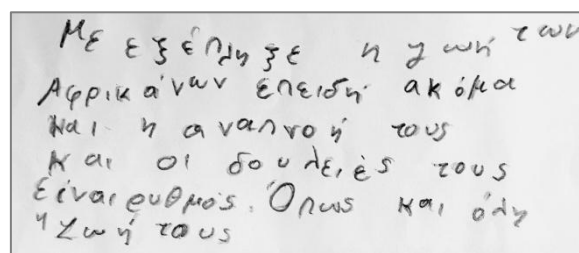 Με εξέπληξε η ζωή των
Αφρικάνων επειδή ακόμα
και η αναπνοή τους
και οι δουλειές τους
είναι ρυθμός. Όπως και όλη
η ζωή τους